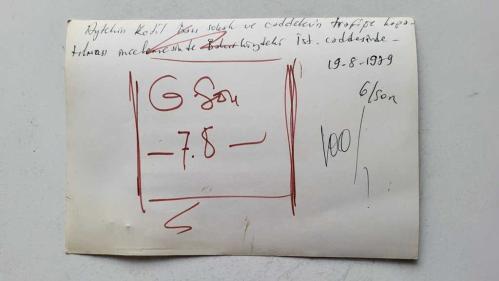 Aytekin Kotil bazı sokak ve caddelerin trafiğe kapa-
tılması incelemesinde İst. caddesinde -
19-8-1979
6/son
G Son
- 7.8 -
100/